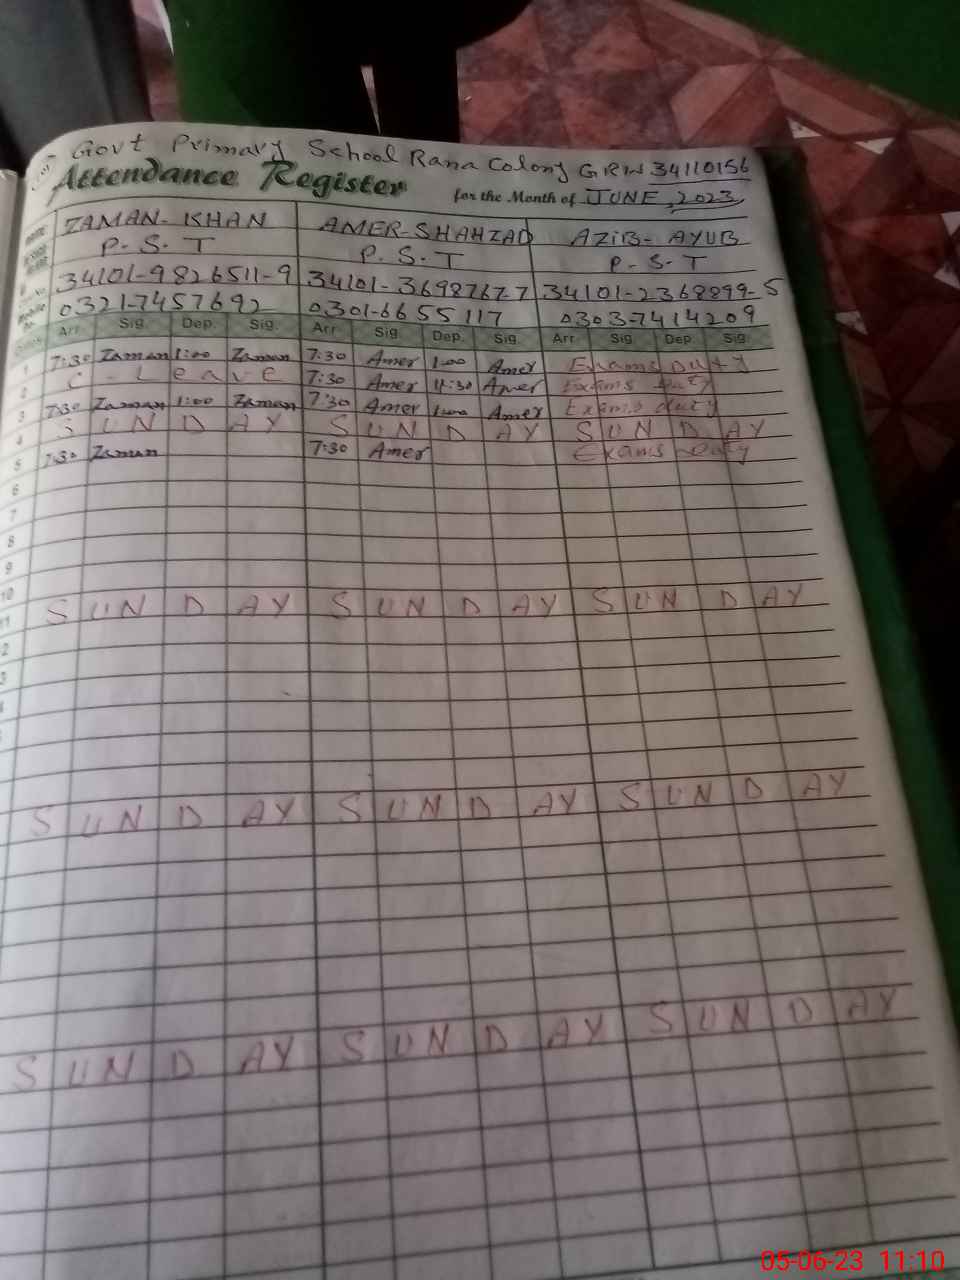 Govt Primary School Rana Colony GRW 34110156
Attendance Register for the Month of JUNE, 2023,
ZAMAN-KHAN AMER-SHAHZAD AZIB-AYUB
P.S.T P.S.T P.S.T
34101-9826511-9 34101-3698767-7 34101-2368899-5
0321-7457692 0301-6655117 0303-7414209
Arr. Sig. Dep. Sig. Arr. Sig. Dep. Sig. Arr. Sig. Dep. Sig.
1 7:30 Zaman 1:00 Zaman 7:30 Amer 1:00 Amer Exams Duty
2 C-Leave 7:30 Amer 11:30 Amer Exams Duty
3 7:30 Zaman 1:00 Zaman 7:30 Amer 1:00 Amer Exams duty
4 SUNDAY SUNDAY SUNDAY
5 7:30 Zaman 7:30 Amer Exams Duty
6
7
8
9
10
11 SUNDAY SUNDAY SUNDAY
2
3
SUNDAY SUNDAY SUNDAY
SUNDAY SUNDAY SUNDAY
05-06-23 11:10